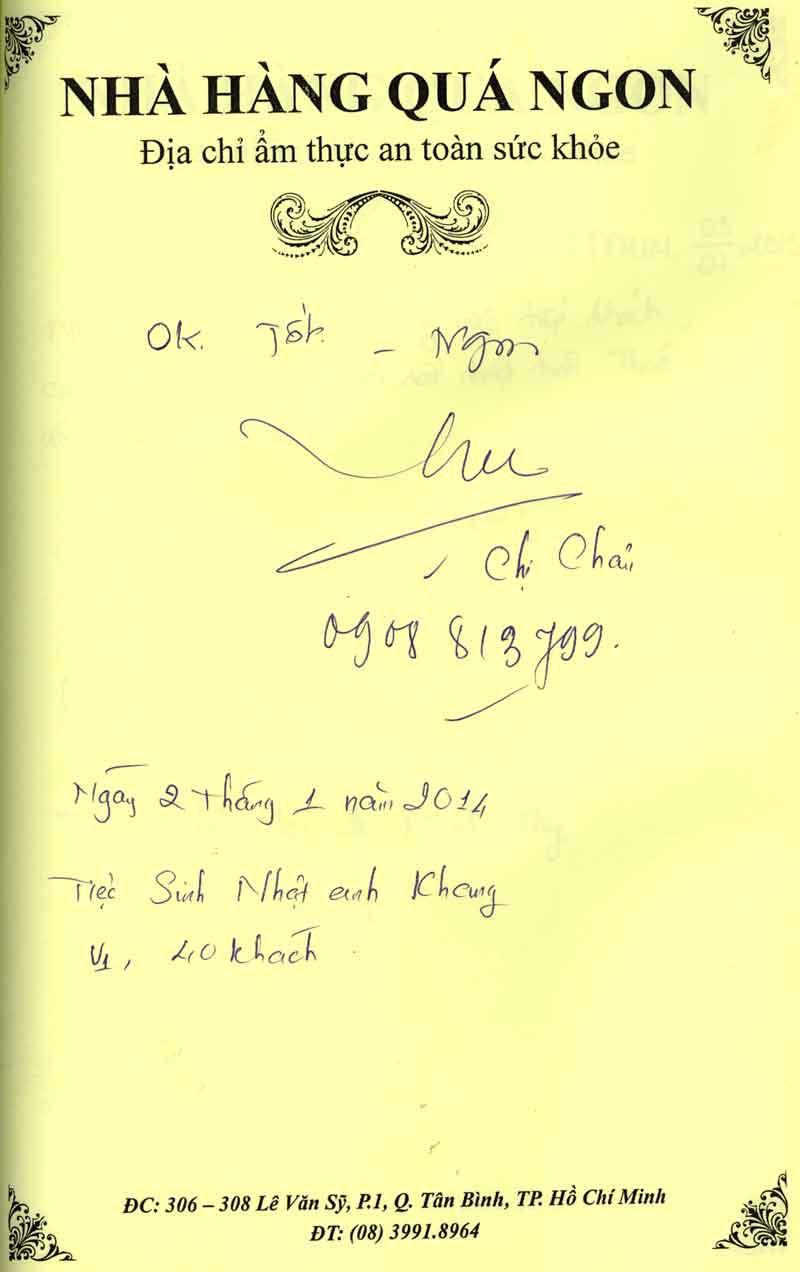 NHÀ HÀNG QUÁ NGON
Địa chỉ ẩm thực an toàn sức khỏe
OK. Tốt - Ngon
Chị Châu
0908 813 799.
Ngày 2 tháng 1 năm 2014
Tiệc Sinh Nhật anh Khang
V1, 40 khách
ĐC: 306 – 308 Lê Văn Sỹ, P.1, Q. Tân Bình, TP. Hồ Chí Minh
ĐT: (08) 3991.8964